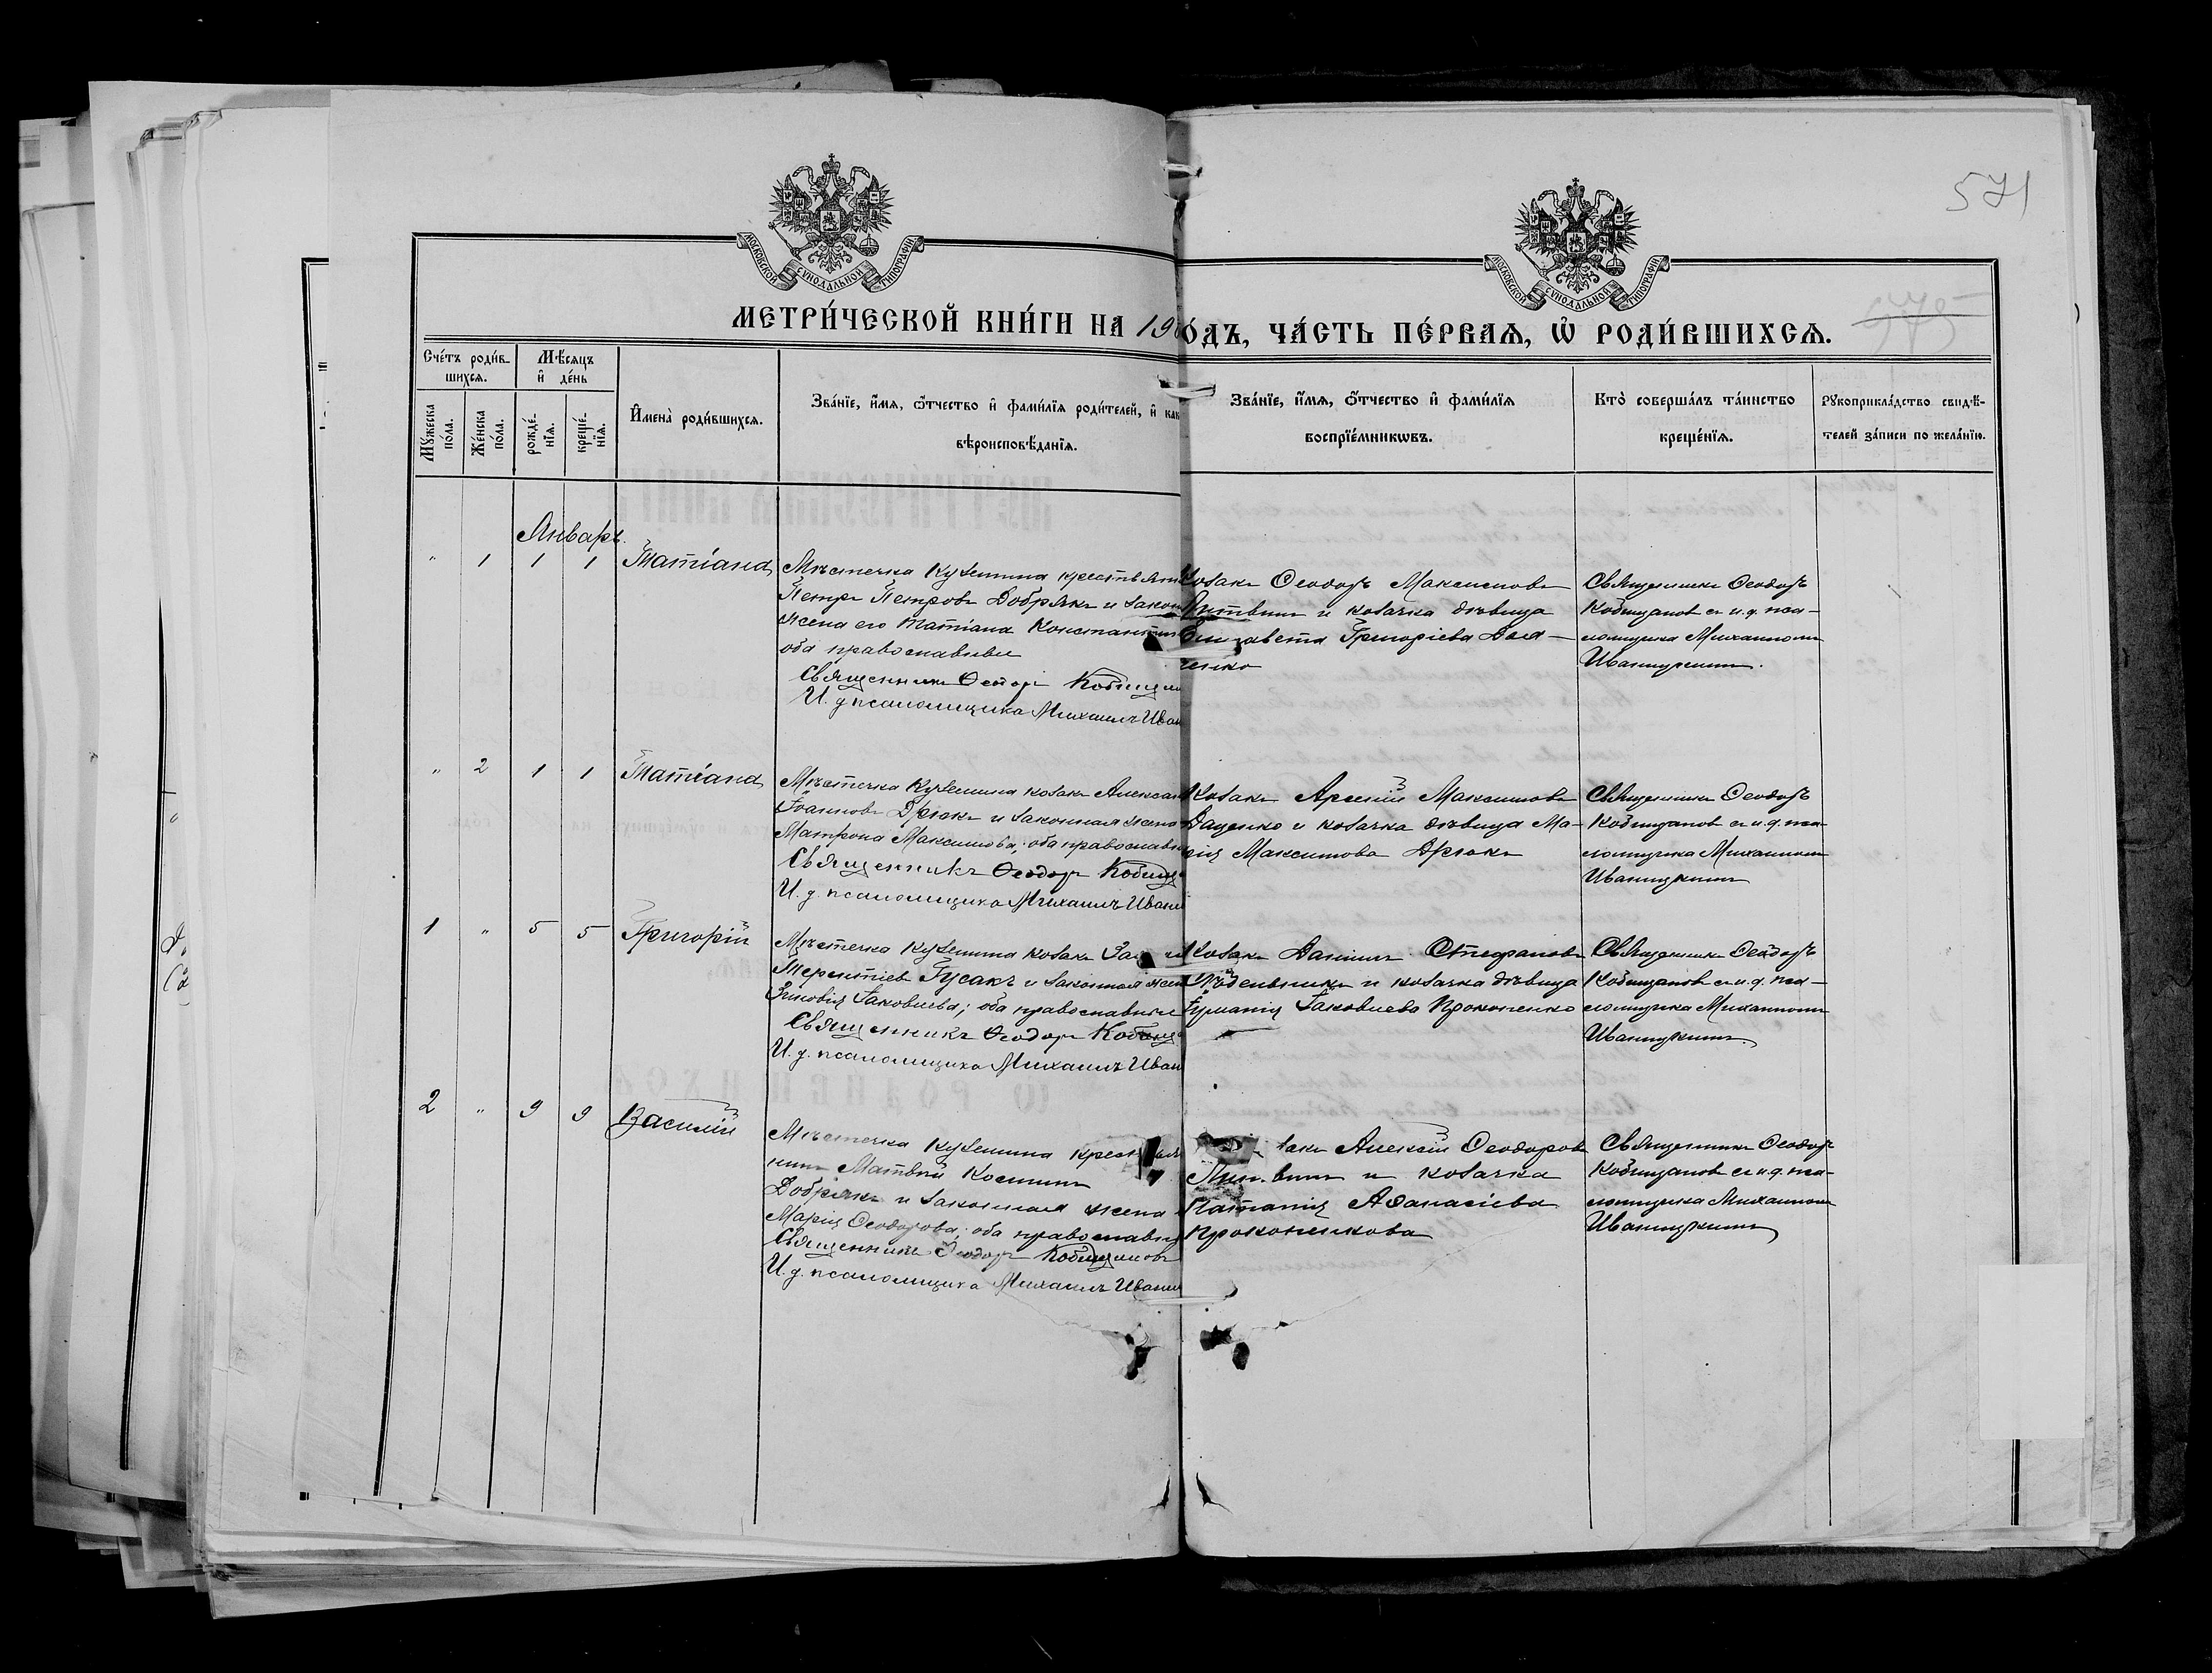 571
МОСКОВСКОЙ СѴНОДАЛЬНОЙ ТИПОГРАФІИ
МОСКОВСКОЙ СѴНОДАЛЬНОЙ ТИПОГРАФІИ
МЕТРИ́ЧЕСКОЙ КНИ́ГИ НА 19
ОДЪ, ЧА́СТЬ ПЕ́РВАѦ, Ѡ РОДИ́ВШИХСѦ.
Сче́тъ роди́в-
шихсѧ.
Мѣ́сѧцъ
и҆ де́нь
Мꙋ́жеска
по́ла.
Же́нска
по́ла.
рожде́-
нїѧ.
креще́-
нїѧ.
И҆мена̀ роди́вшихсѧ.
Зва́нїе, и҆́мѧ, ѻ҆́тчество и҆ фами́лїѧ роди́телей, и҆ как
вѣроисповѣ́данїѧ.
Зва́нїе, и҆́мѧ, ѻ҆́тчество и҆ фами́лїѧ
воспрїе́мникѡвъ.
Кто̀ соверша́лъ та́инство
креще́нїѧ.
Рꙋкоприкла́дство свидѣ́-
телей за́писи по жела́нїю.
Январь.
" 1 1 1 Татіана
Мѣстечка Куземина крестьян
Петръ Петровъ Добрякъ и закон
жена его Татіана Константин
оба православные
Священникъ Ѳеодоръ Кобищан
И. д. псаломщика Михаилъ Иван
Козакъ Ѳеодоръ Максимовъ
Литвинъ и козачка дѣвица
Елизавета Григоріева Дья-
ченко
Священникъ Ѳеодоръ
Кобищановъ съ и.д. пса-
ломщика Михаиломъ
Иваницкимъ.
" 2 1 1 Татіана
Мѣстечка Куземина козакъ Алексан
Іоанновъ Дрюкъ и законная жена
Матрона Максимова; оба православн
Священникъ Ѳеодоръ Кобищ
И. д. псаломщика Михаилъ Иваниц
Козакъ Арсеній Максимовъ
Даценко и козачка дѣвица Ма-
рія Максимова Дрюкъ
Священникъ Ѳеодоръ
Кобищановъ съ и.д. пса-
ломщика Михаиломъ
Иваницкимъ
1 " 5 5 Григорій
Мѣстечка Куземина козакъ
Терентіевъ Гусакъ и законная жен
Зиновія Іаковлева; оба православные
Священникъ Ѳеодоръ Кобищ
И. д. псаломщика Михаилъ Иван
Козакъ Даніилъ Стефановъ
и козачка дѣвица
Іуліанія Іаковлева Прокопенко
Священникъ Ѳеодоръ
Кобищановъ съ и.д. пса-
ломщика Михаиломъ
Иваницкимъ.
2 " 9 9 Василій
Мѣстечка Куземина крестьян
нинъ Матвѣй Косминъ
Добрякъ и законная жена
Марія Ѳеодорова; оба православн
Священникъ Ѳеодоръ Кобищановъ
И. д. псаломщика Михаилъ Иваниц
закъ Алексій Ѳеодоровъ
Литвинъ и козачка
Наталія Аѳанасіева
Прокопенкова
Священникъ Ѳеодоръ
Кобищановъ съ и.д. пса-
ломщика Михаиломъ
Иваницкимъ